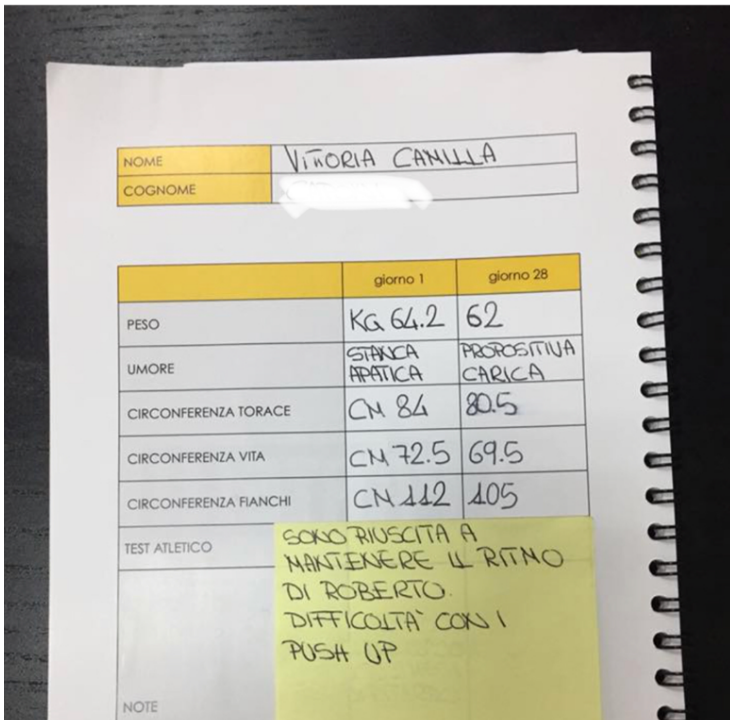 NOME VITTORIA CAMILLA
COGNOME
giorno 1 giorno 28
PESO KG 64.2 62
UMORE STANCA APATICA PROPOSITIVA CARICA
CIRCONFERENZA TORACE CM 84 80.5
CIRCONFERENZA VITA CM 72.5 69.5
CIRCONFERENZA FIANCHI CM 112 105
TEST ATLETICO
SONO RIUSCITA A
MANTENERE IL RITMO
DI ROBERTO.
DIFFICOLTA' CON I
PUSH UP
NOTE